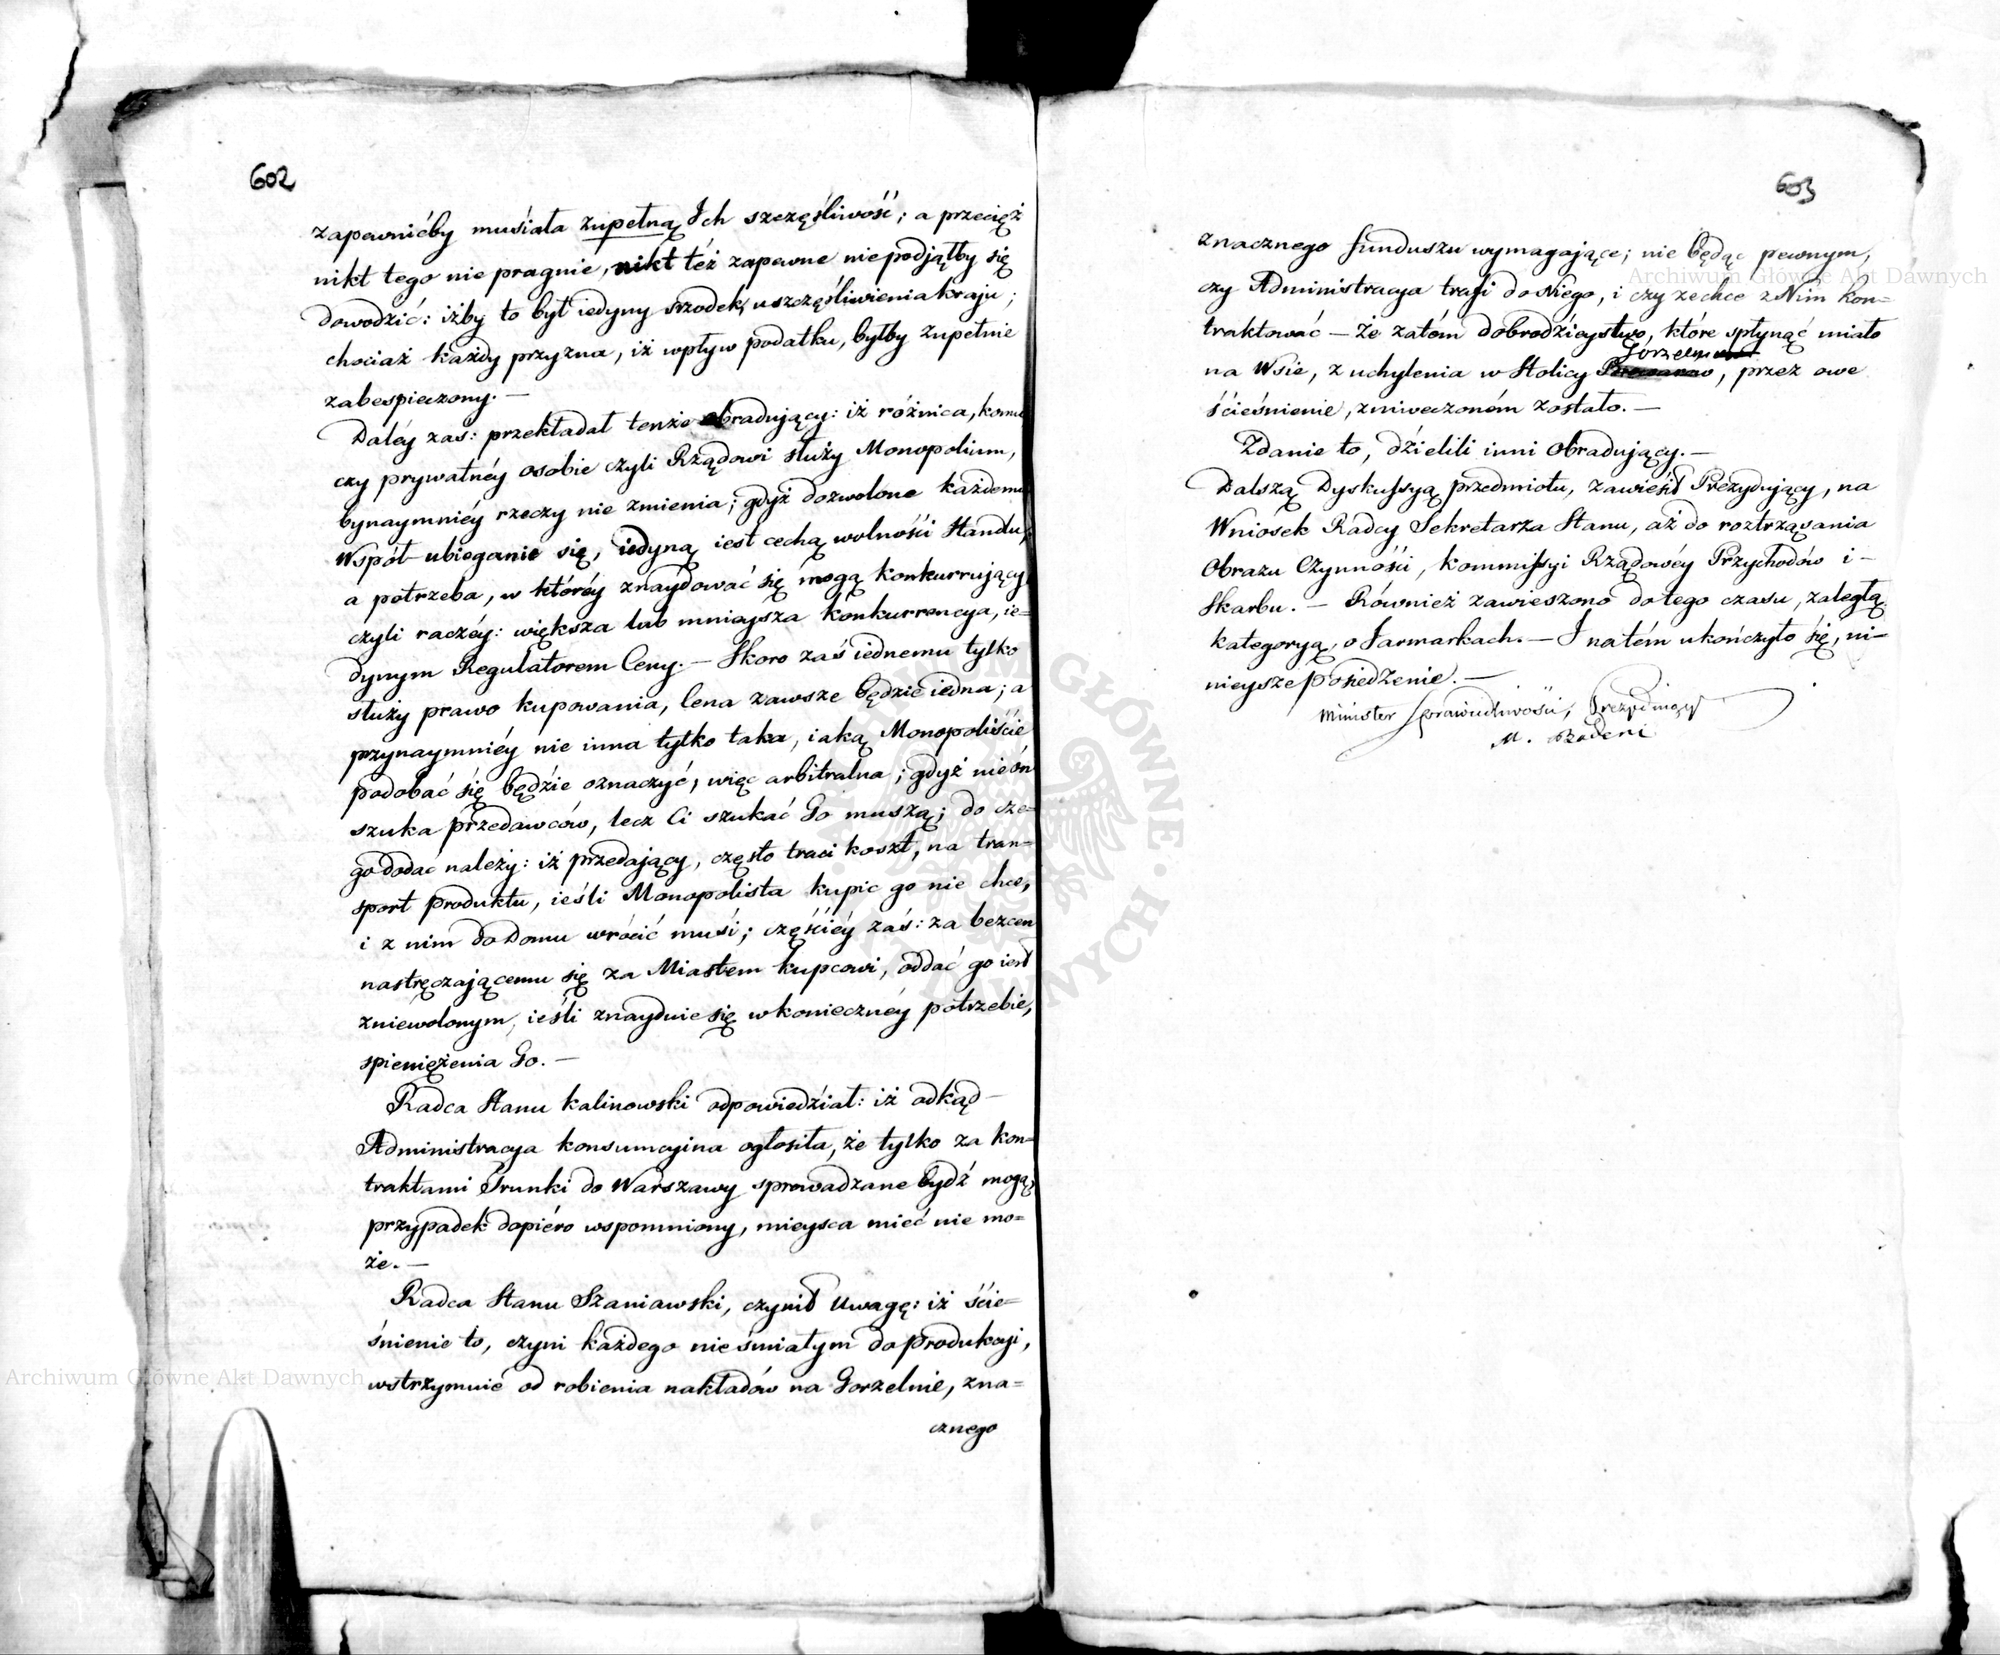 602
zapewnićby musiała zupełną Ich szczęśliwość; a przecięż
nikt tego nie pragnie, nikt téż zapewne niepodjąłby się
dowodzić: iżby to był iedyny srzodek, uszczęśliwienia kraju;
chociaż każdy przyzna, iż wpływ podatku, byłby zupełnie
zabespieczony. —
Daléy zaś: przekładał tenże obradujący: iż różnica, komu
czy prywatnéy osobie czyli Rządowi służy Monopolium,
bynaymniéy rzeczy nie zmienia; gdyż dozwolone każdemu
Współ-ubieganie się, iedyną iest cechą wolności Handlu,
a potrzeba, w któréy znaydować się mogą konkurrujący
czyli raczéy: większa lub mnieysza konkurrencya, ie=
dynym Regulatorem Ceny. — Skoro zaś iednemu tylko
służy prawo kupowania, Cena zawsze będzie iedna; a
przynaymniéy nie inna tylko taka, iaką Monopoliście
podobać się będzie oznaczyć, więc arbitralna; gdyż nie on
szuka przedawców, lecz Ci szukać Go muszą; do cze=
go dodać należy: iż przedający, często traci koszt, na tran=
sport produktu, ieśli Monopolista kupic go nie chce,
i z nim do Domu wrócić musi; częściéy zaś: za bezcen
nastręczającemu się za Miastem kupcowi, oddać go iest
zniéwolonym, ieśli znayduie się w koniecznéy potrzebie,
spieniężenia Go. —
Radca Stanu Kalinowski odpowiedział: iż odkąd —
Administracya konsumcyina ogłosiła, że tylko za kon=
traktami Trunki do Warszawy sprowadzane bydź mogą,
przypadek dopiéro wspomniony, mieysca mieć nie mo=
że. —
Radca Stanu Szaniawski, czynił Uwagę: iż ście=
śnienie to, czyni każdego nieśmiałym do produkcyi,
wstrzymuie od robienia nakładów na Gorzelnie, zna=
cznego
603
znacznego funduszu wymagające; nie będąc pewnym,
czy Administracya trafi do Niego, i czy zechce z Nim kon=
traktować — Że zatém dobrodzieystwo, które spłynąć miało
Gorzelni
na Wsie, z uchylenia w Stolicy Browarów, przez owe
ścieśnienie, zniweczoném zostało. —
Zdanie to, dzielili inni Obradujący. —
Dalszą Dyskussyą przedmiotu, zawiesił Prezydujący, na
Wniosek Radcy Sekretarza Stanu, aż do roztrząsania
Obrazu Czynności, Kommissyi Rządowéy Przychodów i —
Skarbu. — Również zawieszono do tego czasu, zaległą
kategoryą, o Jarmarkach. — I natém ukończyło się, ni=
nieysze posiedzenie. —
Minister Sprawiedliwości, Prezyduiący
M. Badeni
Archiwum Główne Akt Dawnych
Archiwum Główne Akt Dawnych